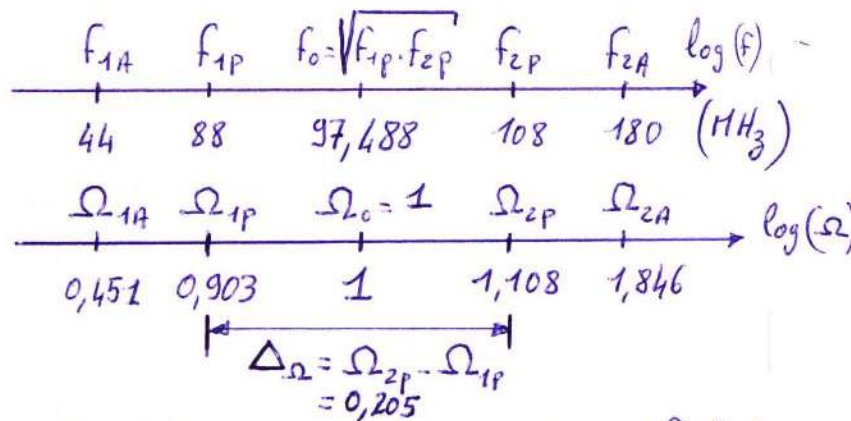 f1A f1P f0 = √f1p · f2p f2p f2A log(f)
44 88 97,488 108 180 (MHz)
Ω1A Ω1P Ω0 = 1 Ω2P Ω2A log(Ω)
0,451 0,903 1 1,108 1,846
ΔΩ = Ω2P - Ω1P
= 0,205